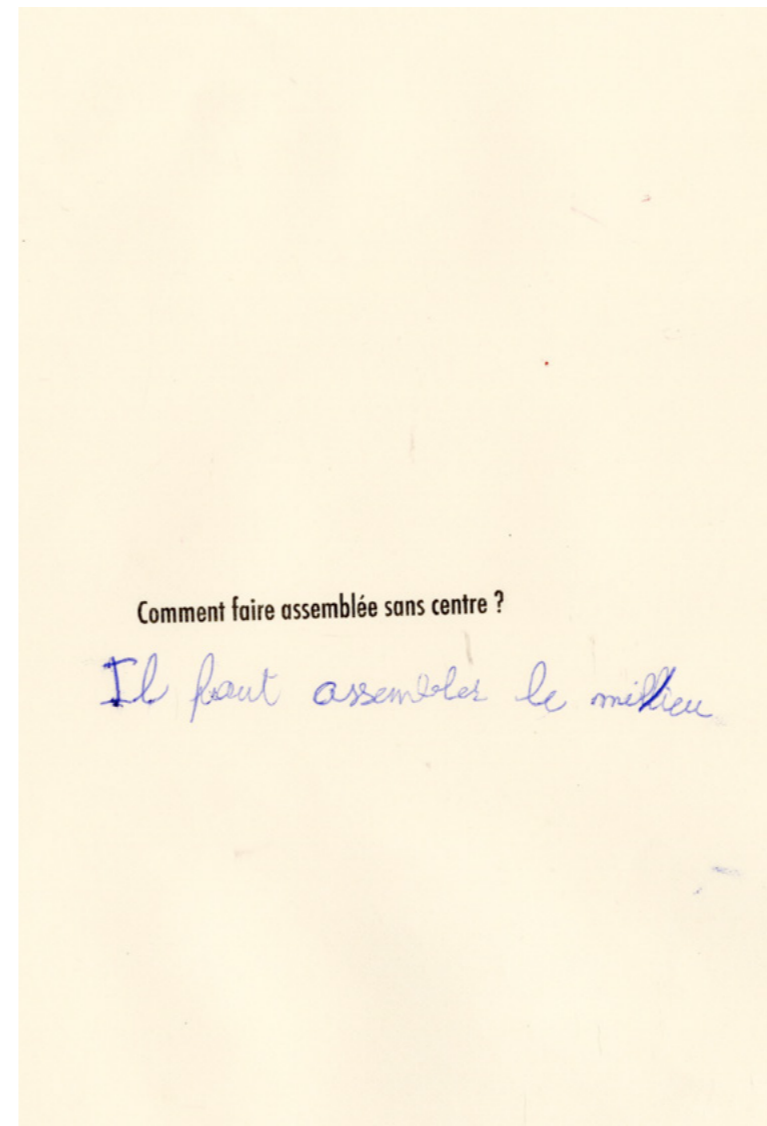 Comment faire assemblée sans centre ?
Il faut assembler le millieu